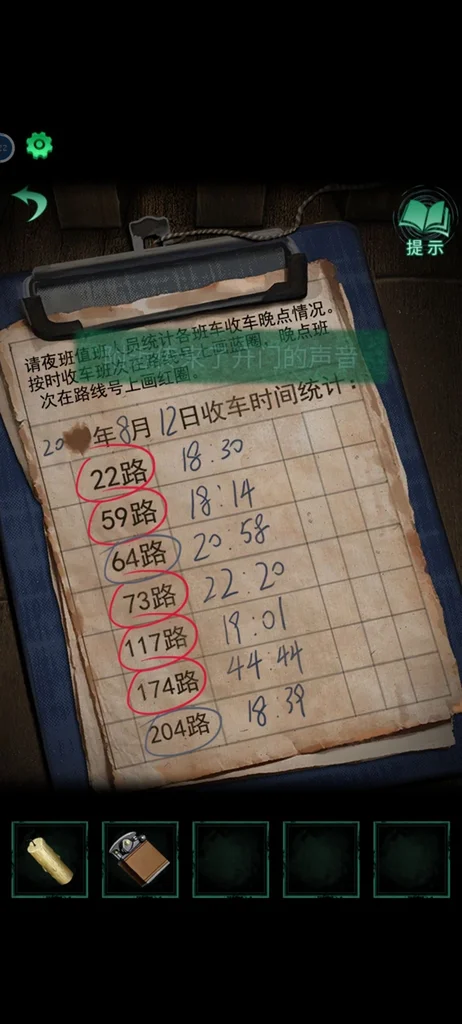 提示
请夜班值班人员统计各班车收车晚点情况。
按时收车班次在路线号上画蓝圈，晚点班
次在路线号上画红圈
开门的声音
20 年8月12日收车时间统计：
22路 18:30
59路 18:14
64路 20:58
73路 22:20
117路 19:01
174路 44:44
204路 18:39